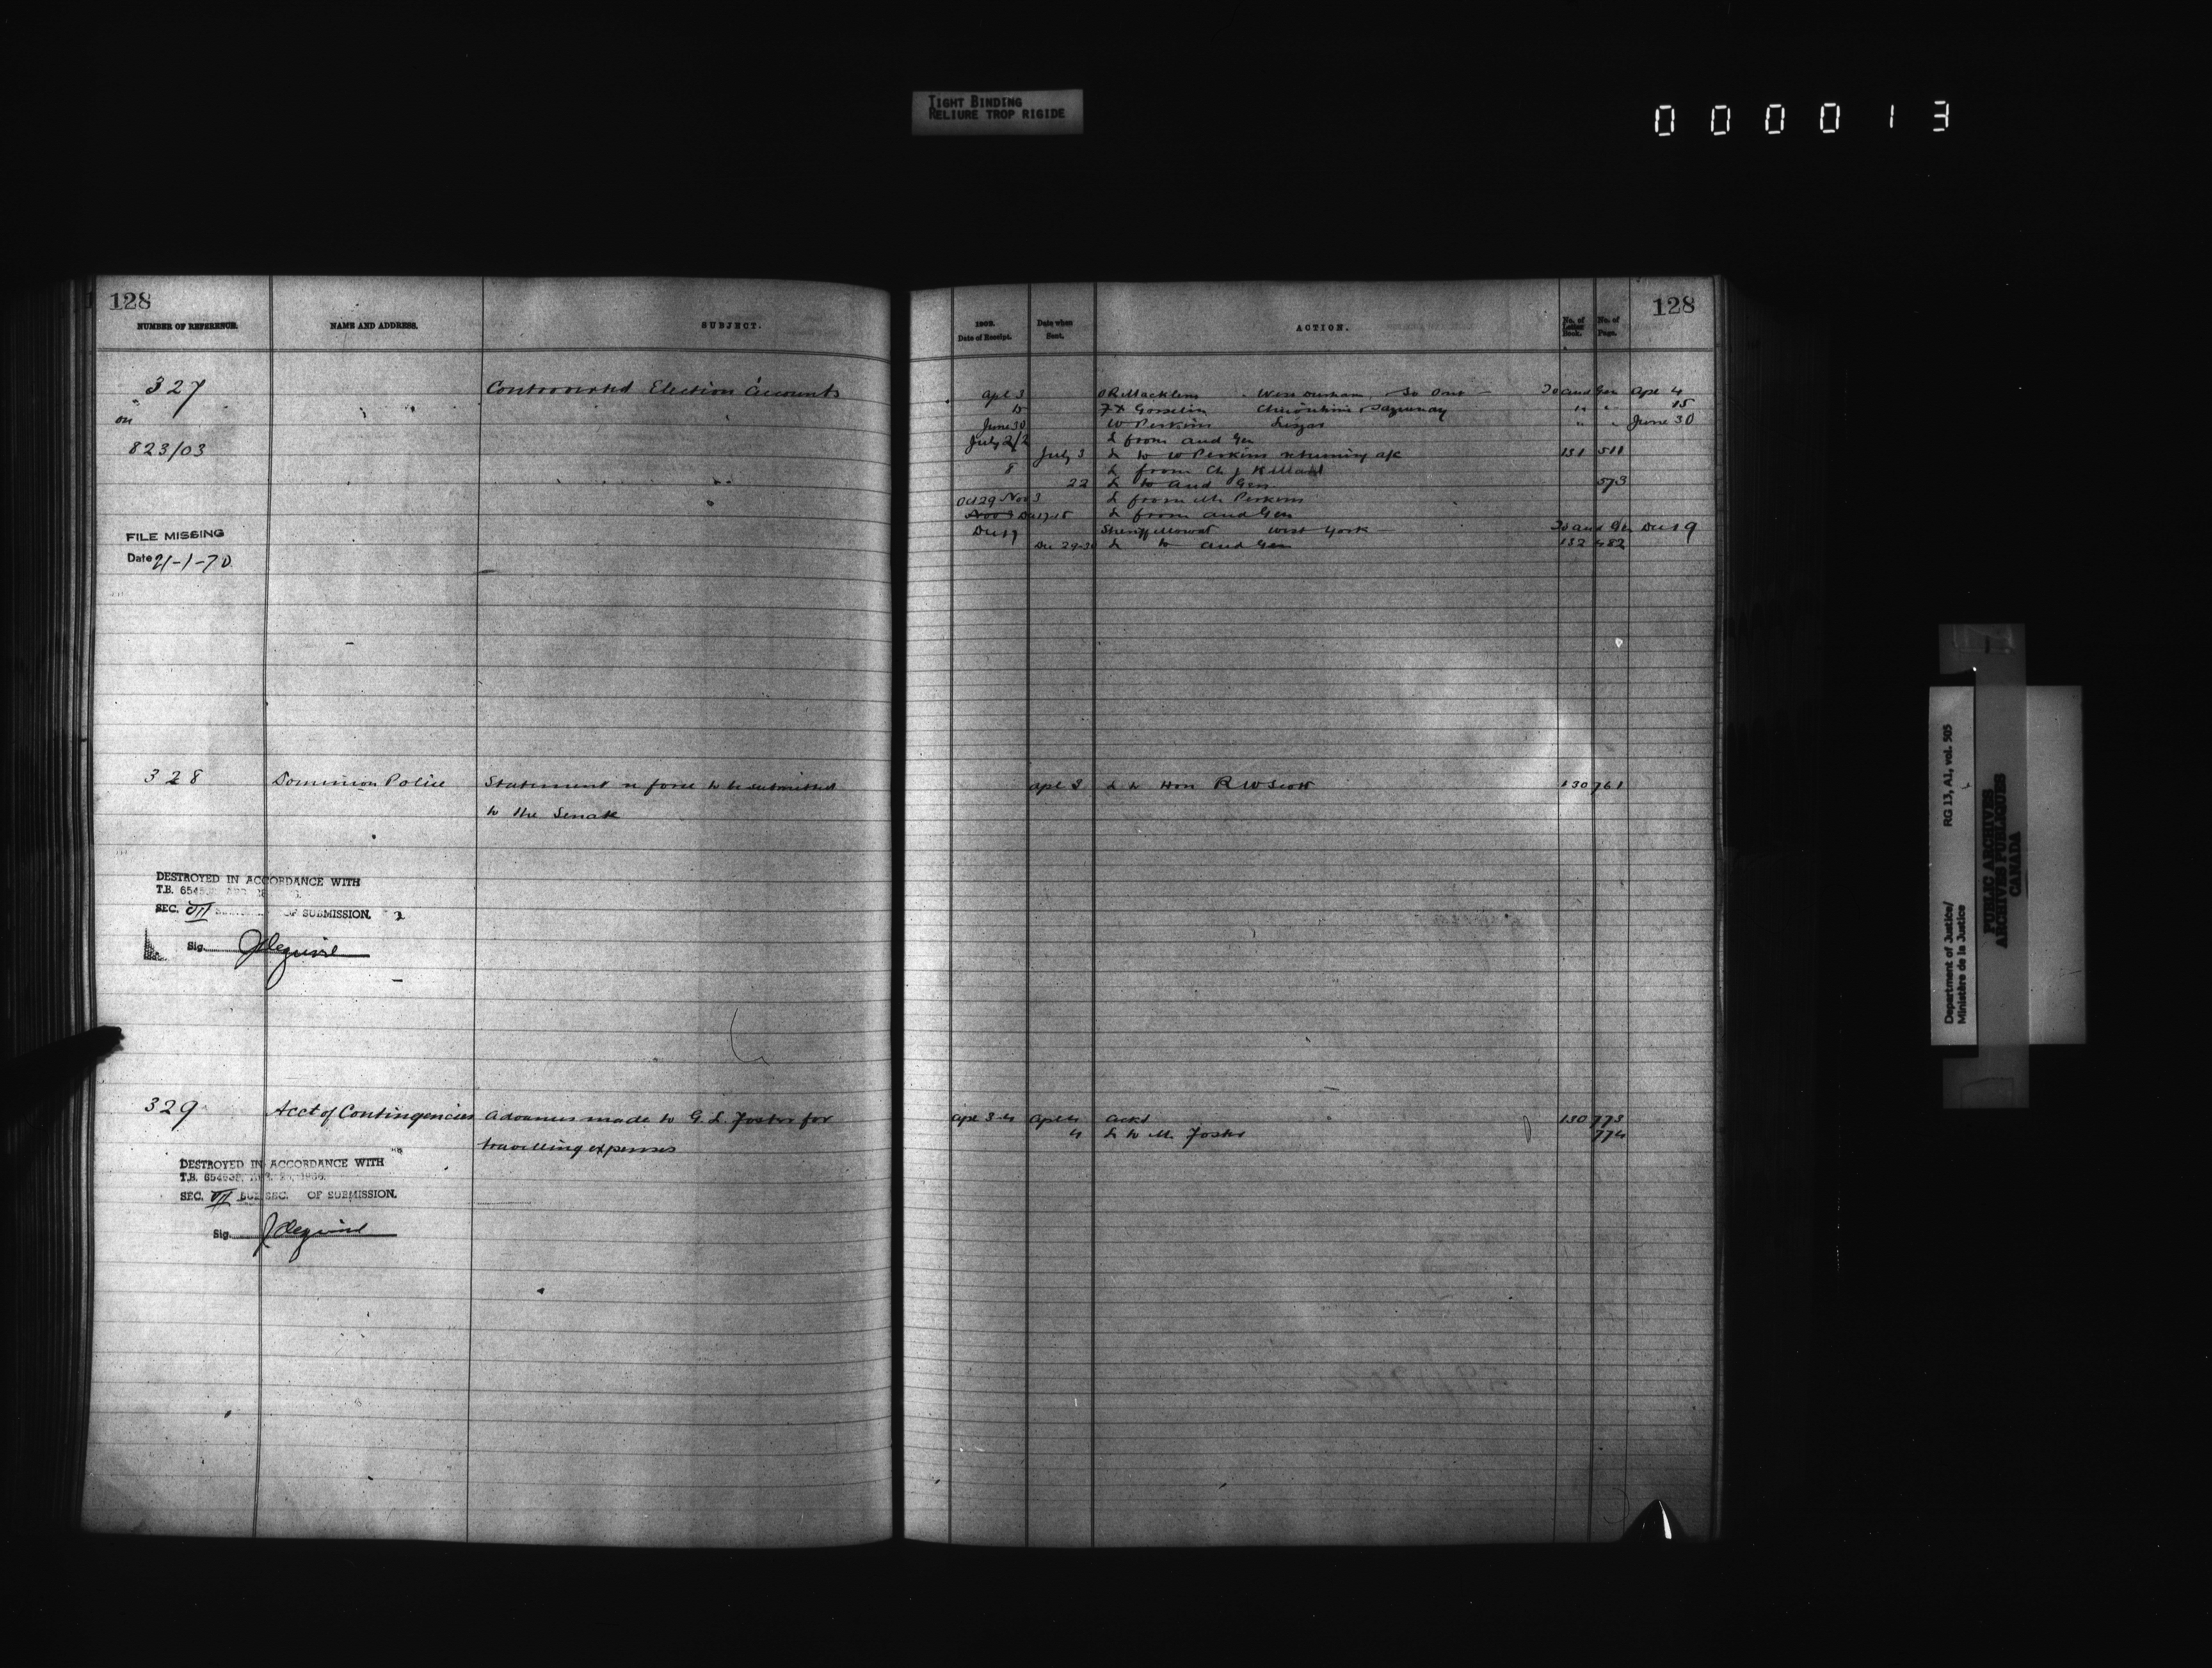 TIGHT BINDING
RELIURE TROP RIGIDE
000013
128
NUMBER OF REFERENCE. NAME AND ADDRESS. SUBJECT.
327 Controverted Election Accounts
on
823/03
FILE MISSING
Date 21-1-70
328 Dominion Police Statement re force to be submitted
to the Senate
DESTROYED IN ACCORDANCE WITH
T.B. 6545
SEC. VII OF SUBMISSION.
Sig.
329 Acct of Contingencies Advances made to G. L. Foster for
travelling expenses
DESTROYED IN ACCORDANCE WITH
T.B. 654532, 1966.
SEC. VII SUB SEC. OF SUBMISSION.
Sig.
128
Date of Receipt. Date when Sent. ACTION. No. of Letter Book. No. of Page.
Apl 3 West Durham To Aud Gen Apl 4
Do F X Gosselin Chicoutimi & Saguenay " " 15
June 30 W Perkins Lisgar " " June 30
July 2/2 L from Aud Gen
July 3 L to W Perkins returning a/c 131 511
8 L from Ch J Killam
22 L to Aud Gen 573
Oct 29 Nov 3 L from Mr Perkins
Nov 3 Dec 17-18 L from Aud Gen
Dec 19 Sheriff Mowat West York To Aud Gen Dec 19
Dec 29-30 L to Aud Gen 132 482
Apl 3 L to Hon R W Scott 130 761
Apl 3-4 Apl 4 Ackd 130 773
4 L to Mr Foster 774
Department of Justice/ RG 13, A1, vol. 505
Ministère de la Justice
PUBLIC ARCHIVES
ARCHIVES PUBLIQUES
CANADA